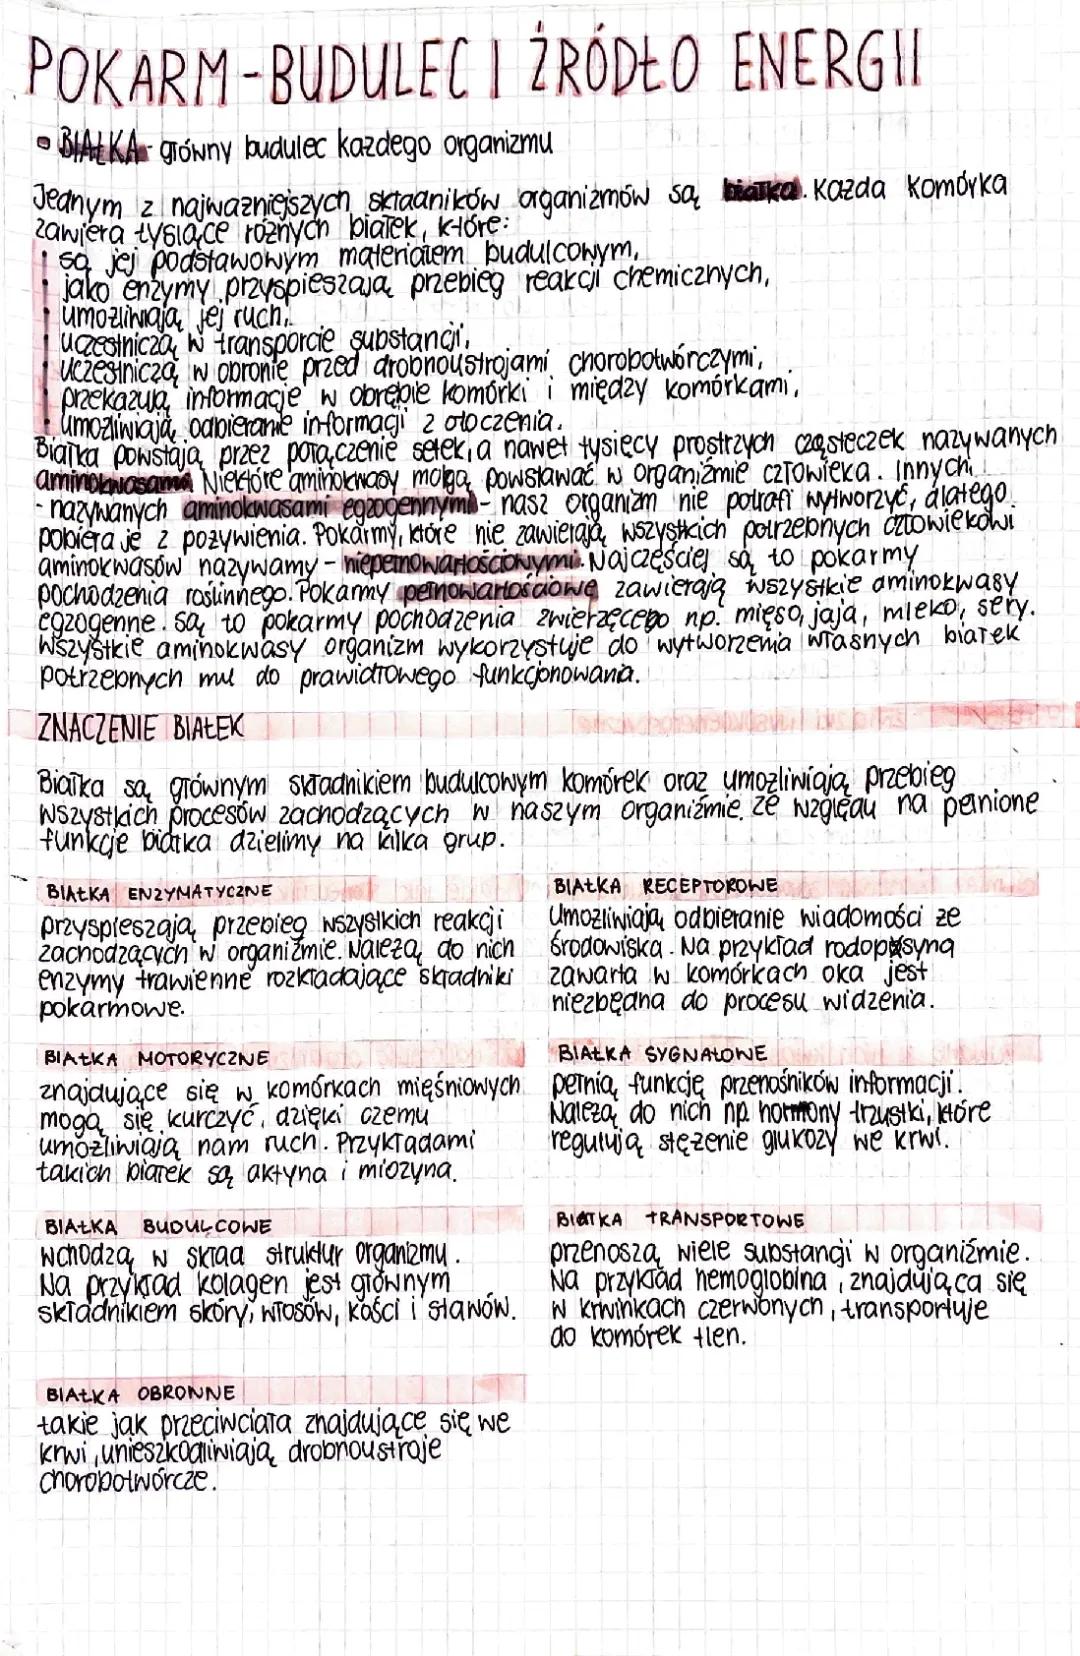 POKARM - BUDULEC I ŹRÓDŁO ENERGII
• BIAŁKA - główny budulec każdego organizmu
Jednym z najważniejszych składników organizmów są białka. Każda komórka
zawiera tysiące różnych białek, które:
• są jej podstawowym materiałem budulcowym,
• jako enzymy przyspieszają przebieg reakcji chemicznych,
• umożliwiają jej ruch,
• uczestniczą w transporcie substancji,
• uczestniczą w obronie przed drobnoustrojami chorobotwórczymi,
• przekazują informacje w obrębie komórki i między komórkami,
• umożliwiają odbieranie informacji z otoczenia.
Białka powstają przez połączenie setek, a nawet tysięcy prostrzych cząsteczek nazywanych
aminokwasami Niektóre aminokwasy mogą powstawać w organiźmie człowieka. Innych,
- nazywanych aminokwasami egzogennymi - nasz organizm nie potrafi wytworzyć, dlatego
pobiera je z pożywienia. Pokarmy, które nie zawierają wszystkich potrzebnych człowiekowi
aminokwasów nazywamy - niepełnowartościowymi. Najczęściej są to pokarmy
pochodzenia roślinnego. Pokarmy pełnowartościowe zawierają wszystkie aminokwasy
egzogenne. Są to pokarmy pochodzenia zwierzęcego np. mięso, jaja, mleko, sery.
Wszystkie aminokwasy organizm wykorzystuje do wytworzenia własnych białek
potrzebnych mu do prawidłowego funkcjonowania.
ZNACZENIE BIAŁEK
Białka są głównym składnikiem budulcowym komórek oraz umożliwiają przebieg
wszystkich procesów zachodzących w naszym organiźmie. Ze względu na pełnione
funkcje białka dzielimy na kilka grup.
BIAŁKA ENZYMATYCZNE
przyspieszają przebieg wszystkich reakcji
zachodzących w organiźmie. Należą do nich
enzymy trawienne rozkładające składniki
pokarmowe.
BIAŁKA MOTORYCZNE
znajdujące się w komórkach mięśniowych
mogą się kurczyć, dzięki czemu
umożliwiają nam ruch. Przykładami
takich białek są aktyna i miozyna.
BIAŁKA BUDULCOWE
wchodzą w skład struktur organizmu.
Na przykład kolagen jest głównym
składnikiem skóry, włosów, kości i stawów.
BIAŁKA OBRONNE
takie jak przeciwciała znajdujące się we
krwi, unieszkodliwiają drobnoustroje
chorobotwórcze.
BIAŁKA RECEPTOROWE
Umożliwiają odbieranie wiadomości ze
środowiska. Na przykład rodopsyna
zawarta w komórkach oka jest
niezbędna do procesu widzenia.
BIAŁKA SYGNAŁOWE
pełnią funkcję przenośników informacji.
Należą do nich np. hormony trzustki, które
regulują stężenie glukozy we krwi.
BIAŁKA TRANSPORTOWE
przenoszą wiele substancji w organiźmie.
Na przykład hemoglobina, znajdująca się
w krwinkach czerwonych, transportuje
do komórek tlen.